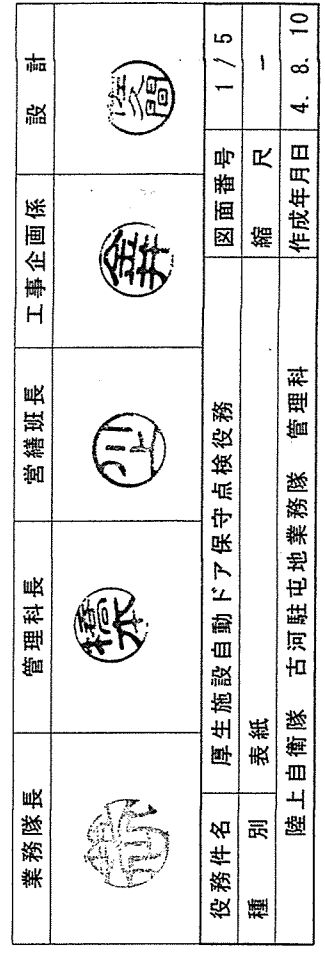 業務隊長 管理科長 営繕班長 工事企画係 設計
役務件名 厚生施設自動ドア保守点検役務 図面番号 1/5
種別 表紙 縮尺 －
陸上自衛隊 古河駐屯地業務隊 管理科 作成年月日 4. 8. 10